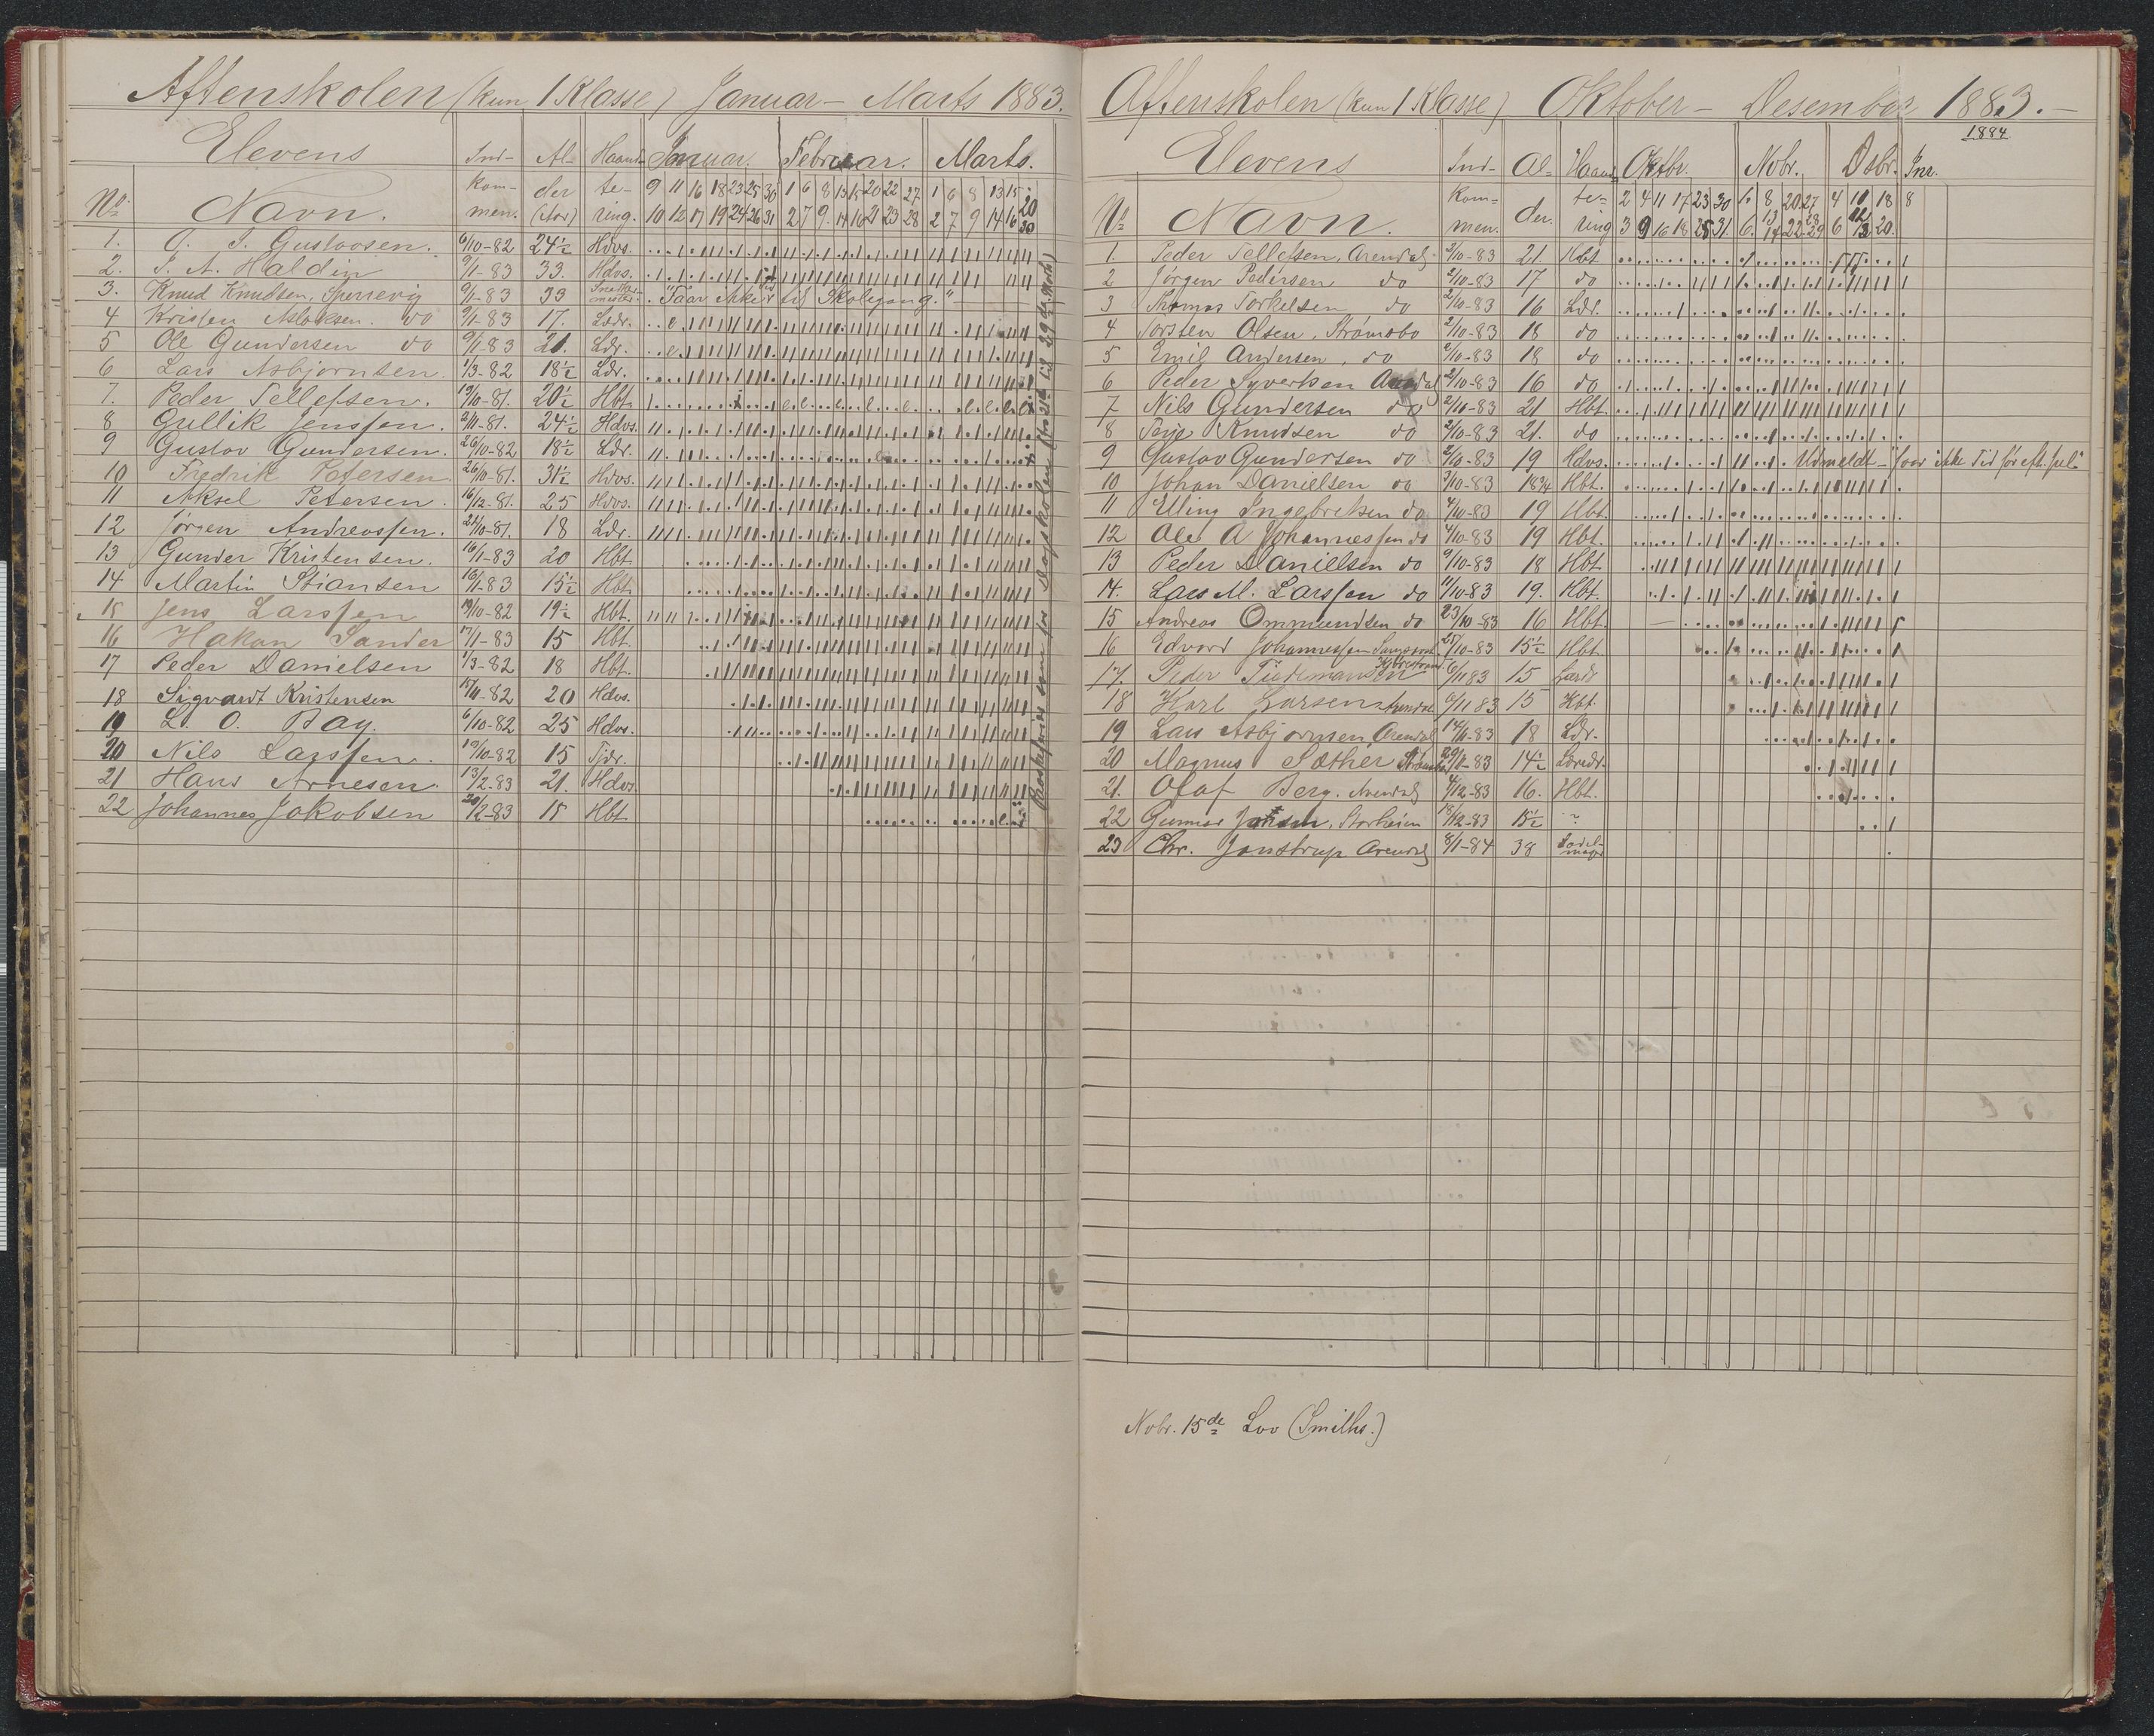 Aftenskolen (kun 1 Klasse) Januar - Marts 1883.
Elevens Ind- Al- Haand- Januar. Februar. Marts.
kom- der te- 9 11 16 18 23 25 30 1 6 8 13 15 20 22 27 1 6 8 13 15 20
No. Navn. men. (Aar) ring. 10 12 17 19 24 26 31 2 7 9 14 16 21 23 28 2 7 9 14 16 30
1. O. J. Gustavsen. 6/10-82 24½ Hdvs.
2. J. A. Haldin 9/1-83 33. Hdvs.
3. Knud Knudsen, Sperrevig 9/1-83 33 "Faar ikke Tid til Skolegang."
4 Kristen Aslaksen. do 9/1-83 17. Ldr.
5 Ole Gundersen do 9/1-83 21. Ldr.
6 Lars Asbjørnsen. 1/3-82 18½ Ldr.
7. Peder Tellefsen. 19/10-81. 20½ Hbt.
8 Gullik Jenssen. 2/11-81. 24½ Hdvs.
9 Gustav Gundersen. 26/10-82 18½ Ldr.
10 Fredrik Petersen 26/10-81. 31½ Hdvs.
11 Aksel Petersen. 16/12-81. 25 Hdvs.
12 Jørgen Andreassen. 21/10-81. 18 Ldr.
13 Gunder Kristensen. 16/1-83 20 Hbt.
14 Martin Stiansen 16/1-83 15½ Hbt.
15 Jens Larssen 19/10-82 19½ Hbt.
16 Hakon Sander 17/1-83 15 Hbt.
17 Peder Danielsen 1/3-82 18 Hbt.
18 Sigvardt Kristensen 82 20 Hdvs.
19 L. O. Bay. 6/10-82 25 Hdvs.
20 Nils Larssen. 19/10-82 15 Tjdr.
21 Hans Arnesen. 13/2-83 21. Hdvs.
22 Johannes Jakobsen 20/2-83 15 Hbt.
Aftenskolen (kun 1 Klasse) Oktober - Desember 1883.
1884
Elevens Ind- Al- Haand- Oktbr. Novbr. Dsbr. Jnr.
kom- te- 2 4 11 17 23 30 6. 8 20 27 4 11 18 8
No Navn. men. der. ring 3 9 16 18 25 31. 6. 14 22 29 6 13 20.
1. Peder Tellefsen, Arendal. 2/10-83 21. Hbt
2 Jørgen Pedersen do 2/10-83 17 do
3 Thomas Torkelsen do 2/10-83 16 Ldr.
4 Torsten Olsen, Strømsbo 2/10-83 18 do
5 Emil Andersen, do 2/10-83 18 do
6 Peder Syvertsen Arendal 2/10-83 16 do
7 Nils Gundersen do 2/10-83 21 Hbt.
8 Terje Knudsen do 2/10-83 21. do
9 Gustav Gundersen do 2/10-83 19 Hdvs. Udmeldt - "faar ikke Tid før eft. Jul"
10 Johan Danielsen do 3/10-83 18¾ Hbt.
11 Elling Ingebretsen do 4/10-83 19 Hbt.
12 Ole A Johannessen do 4/10-83 19 Hbt.
13 Peder Danielsen do 9/10-83 18 Hbt.
14. Lars M. Larssen do 11/10-83 19. Hbt.
15 Andreas Ommundsen do 23/10-83 16 Hbt.
16 Edvard Johannessen 25/10-83 15½ Hbt.
17. Peder Tidemansen 6/11 83 15
18 Karl Larsen Arendal 6/11 83 15 Hbt.
19 Lars Asbjørnsen, Arendal 14/11-83 18 Ldr.
20 Magnus Sæther Strømsbo 29/11-83 14½
21. Olaf Berg. Arendal 4/12-83 16. Hbt.
22 Gunnar Jensen, 18/12-83 15½ "
23 Chr. Jonstrup Arendal 8/1-84 38 Sadel-
mager
Novbr. 15de Lov (Smiths.)